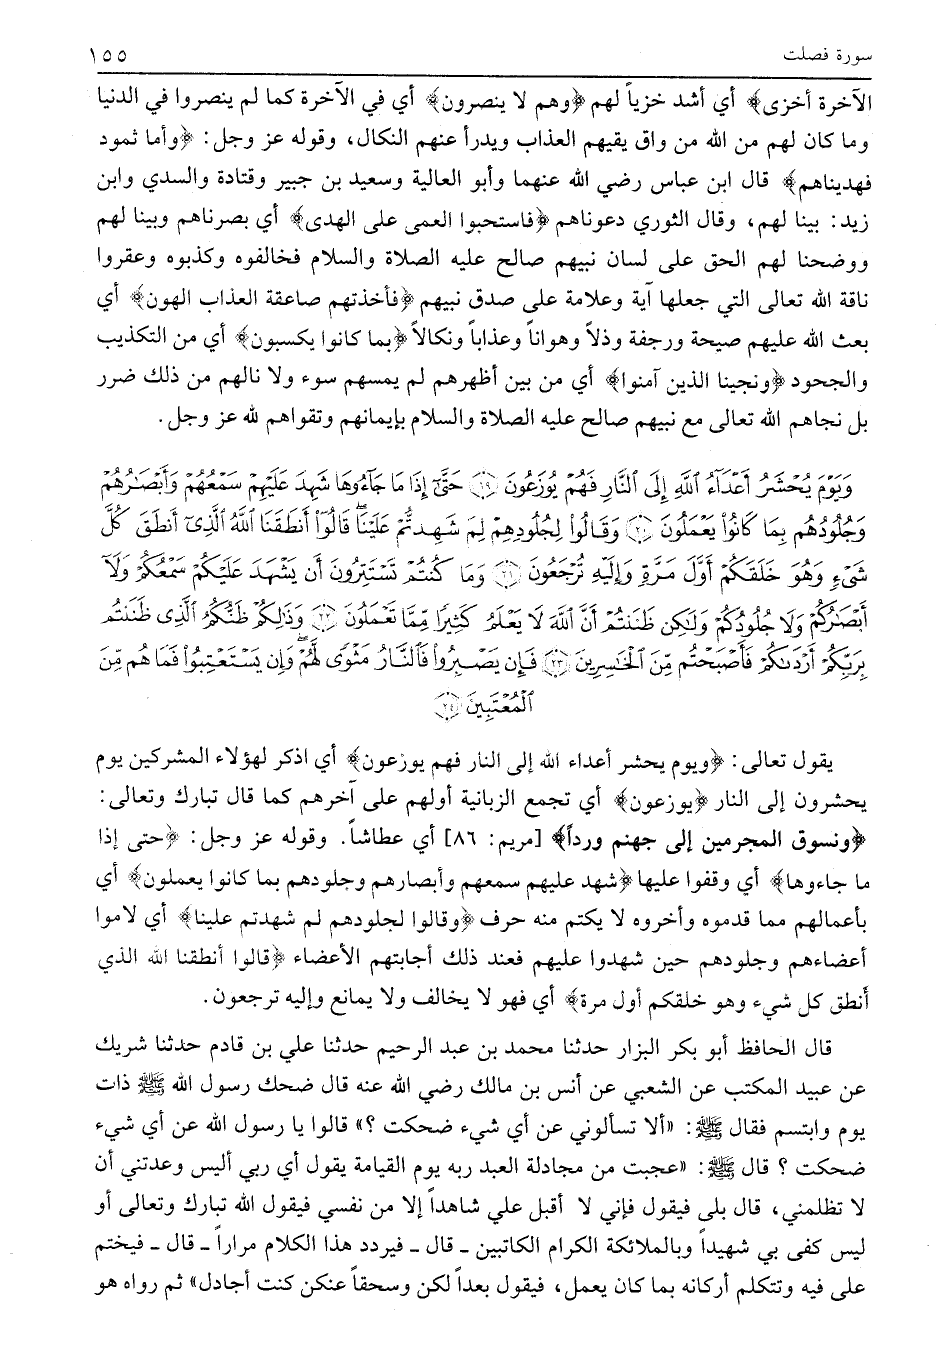 سورة فصلت ١٥٥
الآخرة أخزى﴾ أي أشد خزياً لهم ﴿وهم لا ينصرون﴾ أي في الآخرة كما لم ينصروا في الدنيا
وما كان لهم من الله من واق يقيهم العذاب ويدرأ عنهم النكال، وقوله عز وجل: ﴿وأما ثمود
فهديناهم﴾ قال ابن عباس رضي الله عنهما وأبو العالية وسعيد بن جبير وقتادة والسدي وابن
زيد: بينا لهم، وقال الثوري دعوناهم ﴿فاستحبوا العمى على الهدى﴾ أي بصرناهم وبينا لهم
ووضحنا لهم الحق على لسان نبيهم صالح عليه الصلاة والسلام فخالفوه وكذبوه وعقروا
ناقة الله تعالى التي جعلها آية وعلامة على صدق نبيهم ﴿فأخذتهم صاعقة العذاب الهون﴾ أي
بعث الله عليهم صيحة ورجفة وذلاً وهواناً وعذاباً ونكالاً ﴿بما كانوا يكسبون﴾ أي من التكذيب
والجحود ﴿ونجينا الذين آمنوا﴾ أي من بين أظهرهم لم يمسهم سوء ولا نالهم من ذلك ضرر
بل نجاهم الله تعالى مع نبيهم صالح عليه الصلاة والسلام بإيمانهم وتقواهم لله عز وجل.
وَيَوْمَ يُحْشَرُ أَعْدَآءُ ٱللَّهِ إِلَى ٱلنَّارِ فَهُمْ يُوزَعُونَ ﴿١٩﴾ حَتَّىٰٓ إِذَا مَا جَآءُوهَا شَهِدَ عَلَيْهِمْ سَمْعُهُمْ وَأَبْصَٰرُهُمْ
وَجُلُودُهُم بِمَا كَانُوا۟ يَعْمَلُونَ ﴿٢٠﴾ وَقَالُوا۟ لِجُلُودِهِمْ لِمَ شَهِدتُّمْ عَلَيْنَا ۖ قَالُوٓا۟ أَنطَقَنَا ٱللَّهُ ٱلَّذِىٓ أَنطَقَ كُلَّ
شَىْءٍ وَهُوَ خَلَقَكُمْ أَوَّلَ مَرَّةٍ وَإِلَيْهِ تُرْجَعُونَ ﴿٢١﴾ وَمَا كُنتُمْ تَسْتَتِرُونَ أَن يَشْهَدَ عَلَيْكُمْ سَمْعُكُمْ وَلَآ
أَبْصَٰرُكُمْ وَلَا جُلُودُكُمْ وَلَٰكِن ظَنَنتُمْ أَنَّ ٱللَّهَ لَا يَعْلَمُ كَثِيرًا مِّمَّا تَعْمَلُونَ ﴿٢٢﴾ وَذَٰلِكُمْ ظَنُّكُمُ ٱلَّذِى ظَنَنتُم
بِرَبِّكُمْ أَرْدَىٰكُمْ فَأَصْبَحْتُم مِّنَ ٱلْخَٰسِرِينَ ﴿٢٣﴾ فَإِن يَصْبِرُوا۟ فَٱلنَّارُ مَثْوًى لَّهُمْ ۖ وَإِن يَسْتَعْتِبُوا۟ فَمَا هُم مِّنَ
ٱلْمُعْتَبِينَ ﴿٢٤﴾
يقول تعالى: ﴿ويوم يحشر أعداء الله إلى النار فهم يوزعون﴾ أي اذكر لهؤلاء المشركين يوم
يحشرون إلى النار ﴿يوزعون﴾ أي تجمع الزبانية أولهم على آخرهم كما قال تبارك وتعالى:
﴿ونسوق المجرمين إلى جهنم ورداً﴾ [مريم: ٨٦] أي عطاشاً. وقوله عز وجل: ﴿حتى إذا
ما جاءوها﴾ أي وقفوا عليها ﴿شهد عليهم سمعهم وأبصارهم وجلودهم بما كانوا يعملون﴾ أي
بأعمالهم مما قدموه وأخروه لا يكتم منه حرف ﴿وقالوا لجلودهم لم شهدتم علينا﴾ أي لاموا
أعضاءهم وجلودهم حين شهدوا عليهم فعند ذلك أجابتهم الأعضاء ﴿قالوا أنطقنا الله الذي
أنطق كل شيء وهو خلقكم أول مرة﴾ أي فهو لا يخالف ولا يمانع وإليه ترجعون.
قال الحافظ أبو بكر البزار حدثنا محمد بن عبد الرحيم حدثنا علي بن قادم حدثنا شريك
عن عبيد المكتب عن الشعبي عن أنس بن مالك رضي الله عنه قال ضحك رسول الله ﷺ ذات
يوم وابتسم فقال ﷺ: «ألا تسألوني عن أي شيء ضحكت ؟» قالوا يا رسول الله عن أي شيء
ضحكت ؟ قال ﷺ: «عجبت من مجادلة العبد ربه يوم القيامة يقول أي ربي أليس وعدتني أن
لا تظلمني، قال بلى فيقول فإني لا أقبل علي شاهداً إلا من نفسي فيقول الله تبارك وتعالى أو
ليس كفى بي شهيداً وبالملائكة الكرام الكاتبين ـ قال ـ فيردد هذا الكلام مراراً ـ قال ـ فيختم
على فيه وتتكلم أركانه بما كان يعمل، فيقول بعداً لكن وسحقاً عنكن كنت أجادل» ثم رواه هو